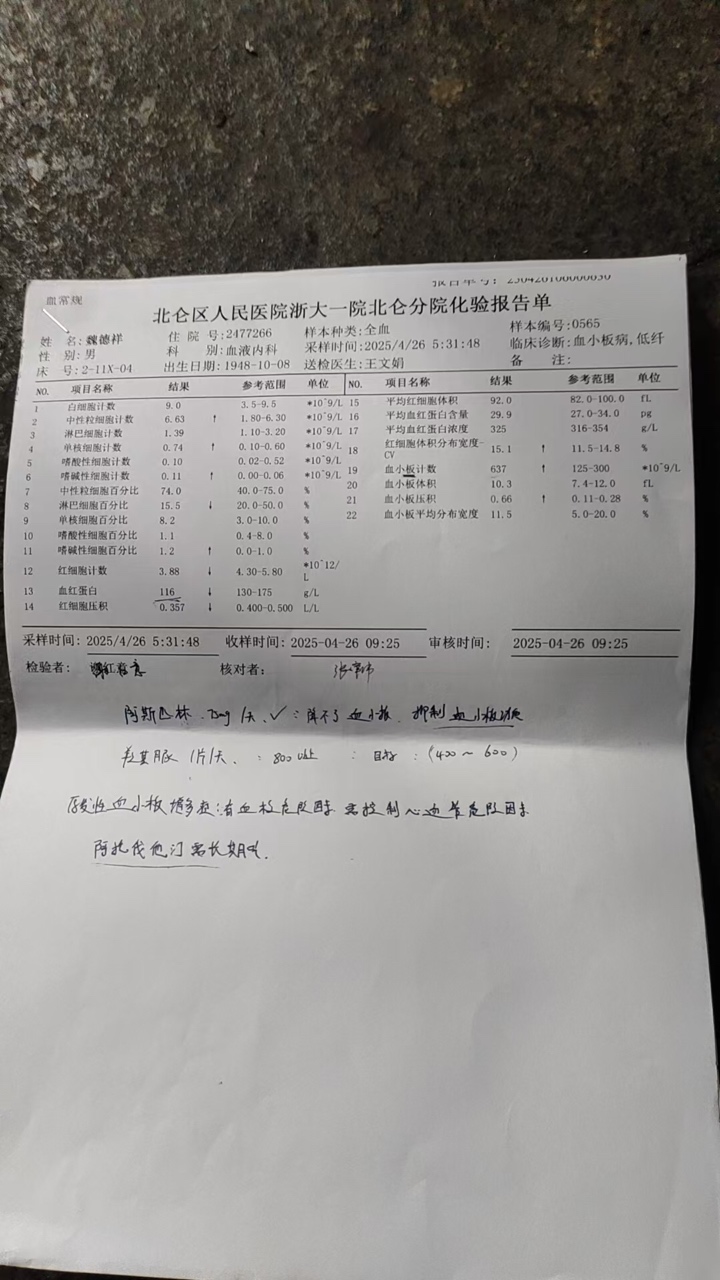 血常规
北仑区人民医院浙大一院北仑分院化验报告单
姓 名:魏德祥 住 院 号:2477266 样本种类:全血 样本编号:0565
性 别:男 科 别:血液内科 采样时间:2025/4/26 5:31:48 临床诊断:血小板病,低纤
床 号:2-11X-04 出生日期:1948-10-08 送检医生:王文娟 备 注:
NO. 项目名称 结果 参考范围 单位 NO. 项目名称 结果 参考范围 单位
1 白细胞计数 9.0 3.5-9.5 *10^9/L 15 平均红细胞体积 92.0 82.0-100.0 fL
2 中性粒细胞计数 6.63 ↑ 1.80-6.30 *10^9/L 16 平均血红蛋白含量 29.9 27.0-34.0 pg
3 淋巴细胞计数 1.39 1.10-3.20 *10^9/L 17 平均血红蛋白浓度 325 316-354 g/L
4 单核细胞计数 0.74 ↑ 0.10-0.60 *10^9/L 18 红细胞体积分布宽度-CV 15.1 ↑ 11.5-14.8 %
5 嗜酸性细胞计数 0.10 0.02-0.52 *10^9/L 19 血小板计数 637 ↑ 125-300 *10^9/L
6 嗜碱性细胞计数 0.11 ↑ 0.00-0.06 *10^9/L 20 血小板体积 10.3 7.4-12.0 fL
7 中性细胞百分比 74.0 40.0-75.0 % 21 血小板压积 0.66 ↑ 0.11-0.28 %
8 淋巴细胞百分比 15.5 ↓ 20.0-50.0 % 22 血小板平均分布宽度 11.5 5.0-20.0 %
9 单核细胞百分比 8.2 3.0-10.0 %
10 嗜酸性细胞百分比 1.1 0.4-8.0 %
11 嗜碱性细胞百分比 1.2 ↑ 0.0-1.0 %
12 红细胞计数 3.88 ↓ 4.30-5.80 *10^12/L
13 血红蛋白 116 ↓ 130-175 g/L
14 红细胞压积 0.357 ↓ 0.400-0.500 L/L
采样时间: 2025/4/26 5:31:48 收样时间: 2025-04-26 09:25 审核时间: 2025-04-26 09:25
检验者: 核对者:
阿斯匹林 75mg 1天 ✓ : 降不了血小板 抑制血小板
羟基脲 1片1天 : 800以上 : 目标 : (400~600)
血小板增多症:有血栓危险因素 需控制心血管危险因素
阿托伐他汀需长期吃.